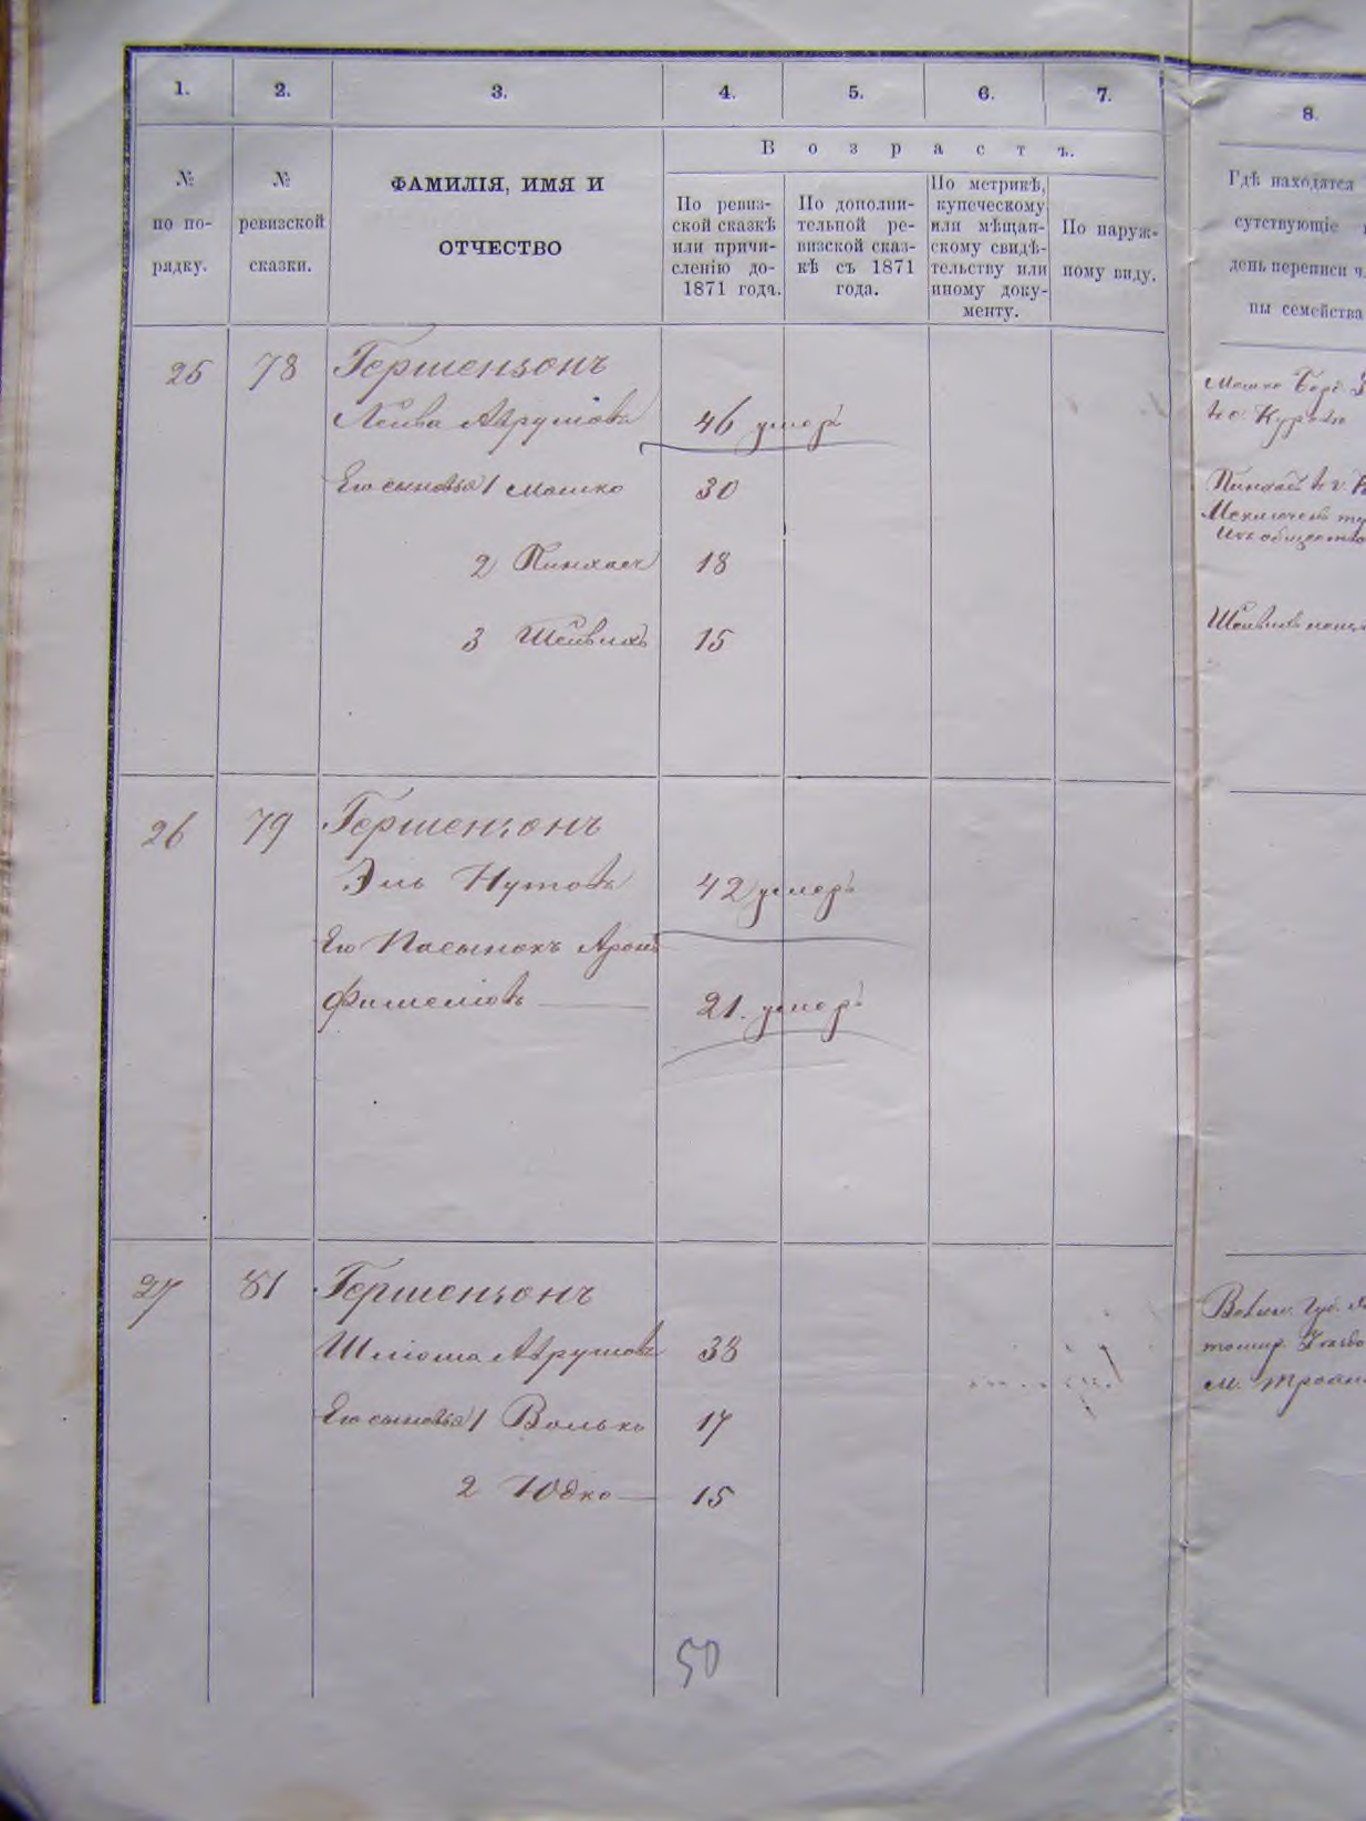 1. 2. 3. 4. 5. 6. 7. 8.
В о з р а с т ъ.
№
по по-
рядку.
№
ревизской
сказки.
ФАМИЛІЯ, ИМЯ И
ОТЧЕСТВО
По ревиз-
ской сказкѣ
или причи-
сленію до-
1871 года.
По дополни-
тельной ре-
визской сказ-
кѣ съ 1871
года.
По метрикѣ,
купеческому
или мѣщан-
скому свидѣ-
тельству или
иному доку-
менту.
По наруж-
ному виду.
Гдѣ находятся
сутствующіе
день переписи ч
ны семейства
25 78 Гершензонъ
Лейва Аврумовъ 46 умеръ
Его сыновья 1 Мошко 30
2 Пинхасъ 18
3 Шейвихъ 15
Мошко
въ с.
Пинхасъ въ г.
Изъ общества
Шейвихъ
26 79 Гершензонъ
Эль Нутовъ 42 умеръ
Его Пасынокъ Аронъ
Фишелевъ 21. умеръ
27 81 Гершензонъ
Шліома Аврумовъ 38
Его сыновья 1 Волько 17
2 Юдко 15
Волын. Губ.
м.
50